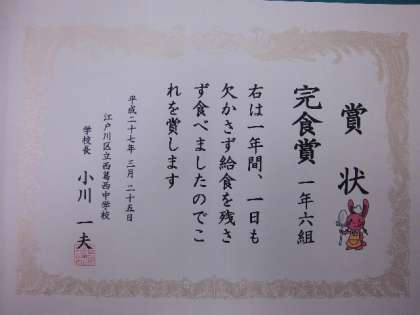 賞状
完食賞 一年六組
右は一年間、一日も
欠かさず給食を残さ
ず食べましたのでこ
れを賞します
平成二十七年 三月 二十五日
江戸川区立西葛西中学校
学校長 小川 一夫